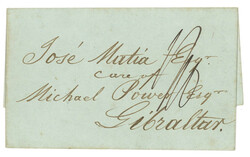 José Matia Esqr.
care of
Michael Power Esqr
Gibraltar.